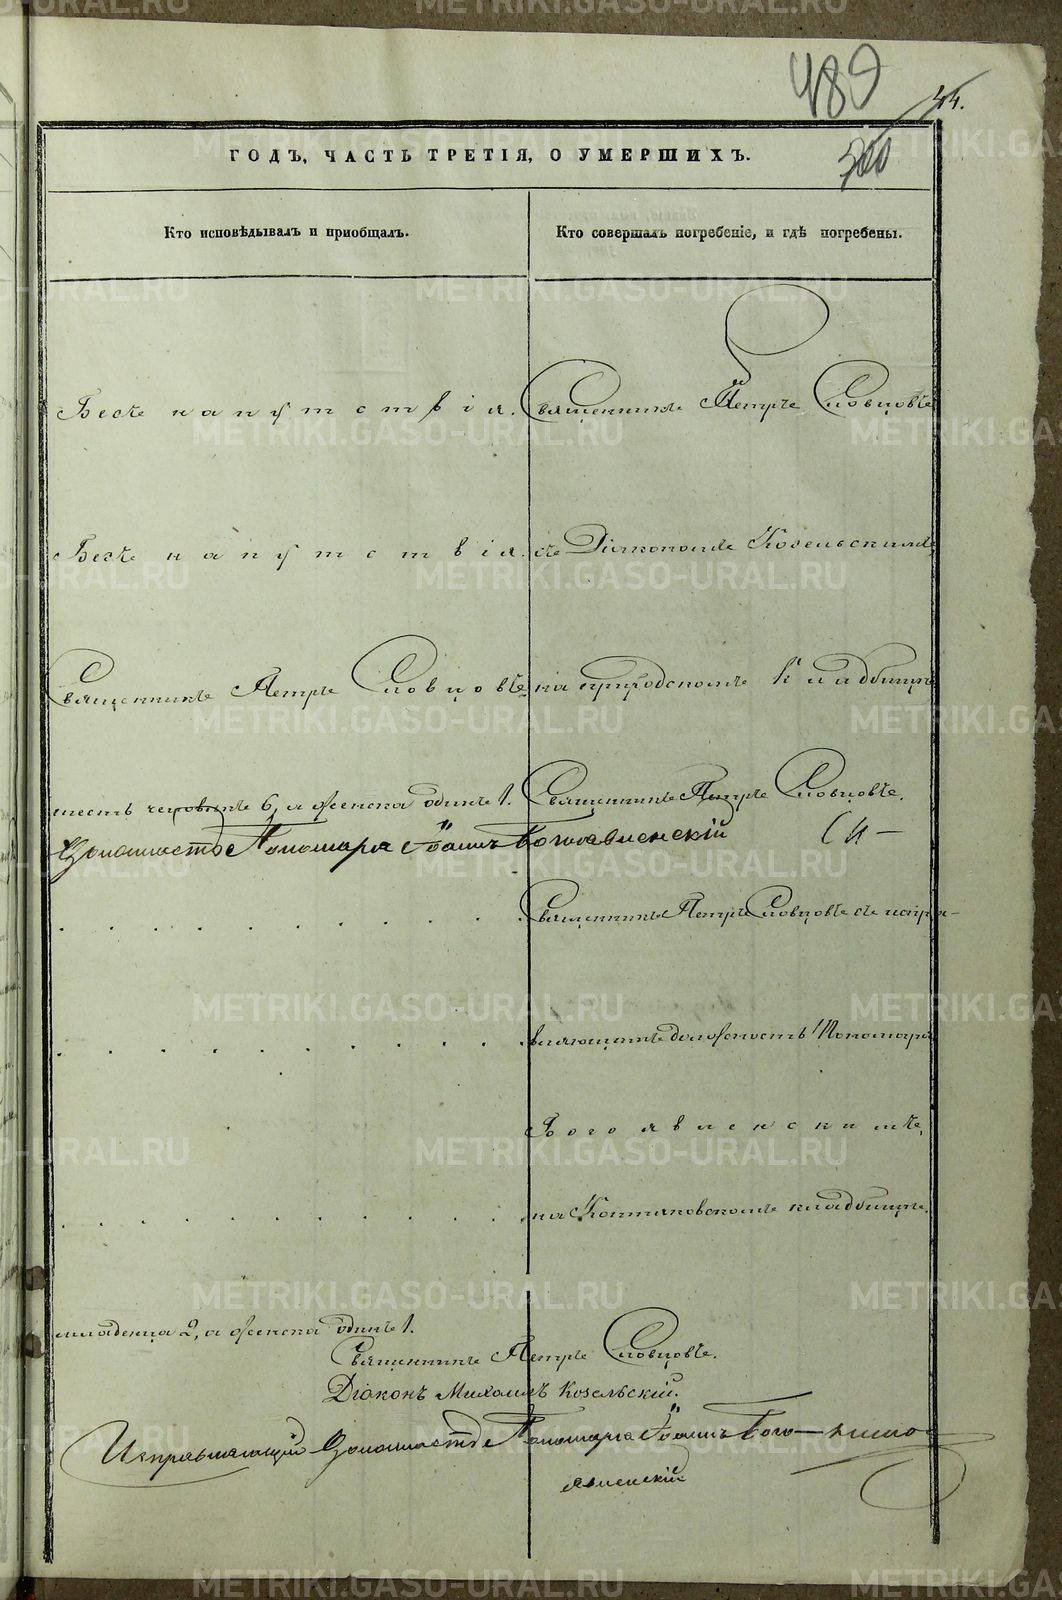 489
44.
ГОДЪ, ЧАСТЬ ТРЕТІЯ, О УМЕРШИХЪ.
300
Кто исповѣдывалъ и приобщалъ.
Кто совершалъ погребеніе, и гдѣ погребены.
Безъ напутствія. Священникъ Петръ Словцовъ
Безъ напутствія. съ Діакономъ Козельскимъ
Священникъ Петръ Словцовъ на приходскомъ кладбищѣ
шесть человѣкъ 6, а женска одинъ 1. Священникъ Петръ Словцовъ.
Должность Пономаря Іоаннъ Богоявленскій
Священникъ Петръ Словцовъ съ испра-
вляющимъ должность Пономаря
Богоявленскимъ,
на Коптяковскомъ кладбищѣ.
младенца 2, а женска одинъ 1.
Священникъ Петръ Словцовъ.
Діаконъ Михаилъ Козельскій.
Исправляющій Должность Пономаря Іоаннъ Бого-
явленскій
METRIKI.GASO-URAL.RU